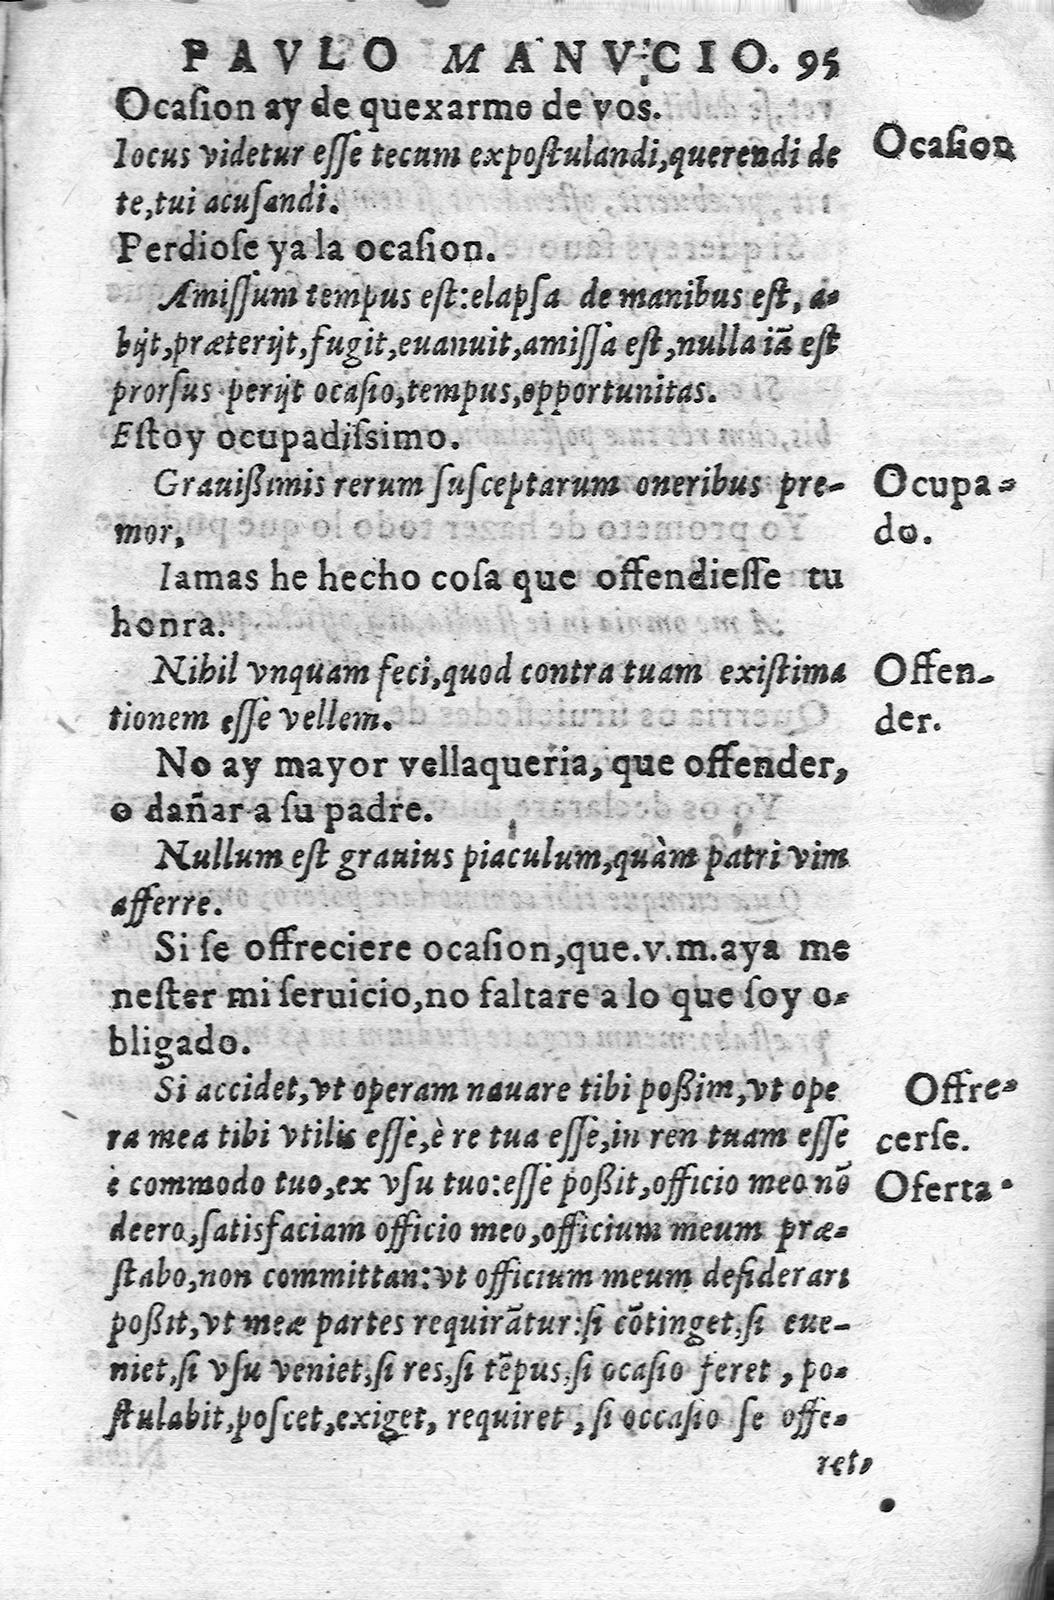 PAVLO MANVCIO. 95
Ocaſion ay de quexarme de vos.
Iocus videtur eſſe tecum expoſtulandi,querendi de
te,tui acuſandi.
Ocaſion
Perdioſe ya la ocaſion.
Amiſſum tempus eſt:elapſa de manibus eſt, a-
bijt,præterijt,fugit,euanuit,amiſſa eſt,nulla iã eſt
prorſus perijt ocaſio,tempus,opportunitas.
Eſtoy ocupadiſsimo.
Grauißimis rerum ſuſceptarum oneribus pre-
mor,
Ocupa-
do.
Iamas he hecho coſa que offendieſſe tu
honra.
Nihil vnquam feci,quod contra tuam exiſtima
tionem eſſe vellem.
Offen-
der.
No ay mayor vellaqueria, que offender,
o dañar a ſu padre.
Nullum eſt grauius piaculum,quàm patri vim
afferre.
Si ſe offreciere ocaſion,que.v.m.aya me
neſter mi ſeruicio,no faltare a lo que ſoy o-
bligado.
Si accidet,vt operam nauare tibi poßim,vt ope
ra mea tibi vtilis eſſe,è re tua eſſe,in ren tuam eſſe
è commodo tuo,ex vſu tuo:eſſe poßit,officio meo nõ
deero,ſatisfaciam officio meo,officium meum præ-
ſtabo,non committan:vt officium meum deſiderari
poßit,vt meæ partes requirãtur:ſi cõtinget,ſi eue-
niet,ſi vſu veniet,ſi res,ſi tẽpus,ſi ocaſio feret, po-
ſtulabit,poſcet,exiget, requiret, ſi occaſio ſe offe-
ret,
Offre-
cerſe.
Oferta